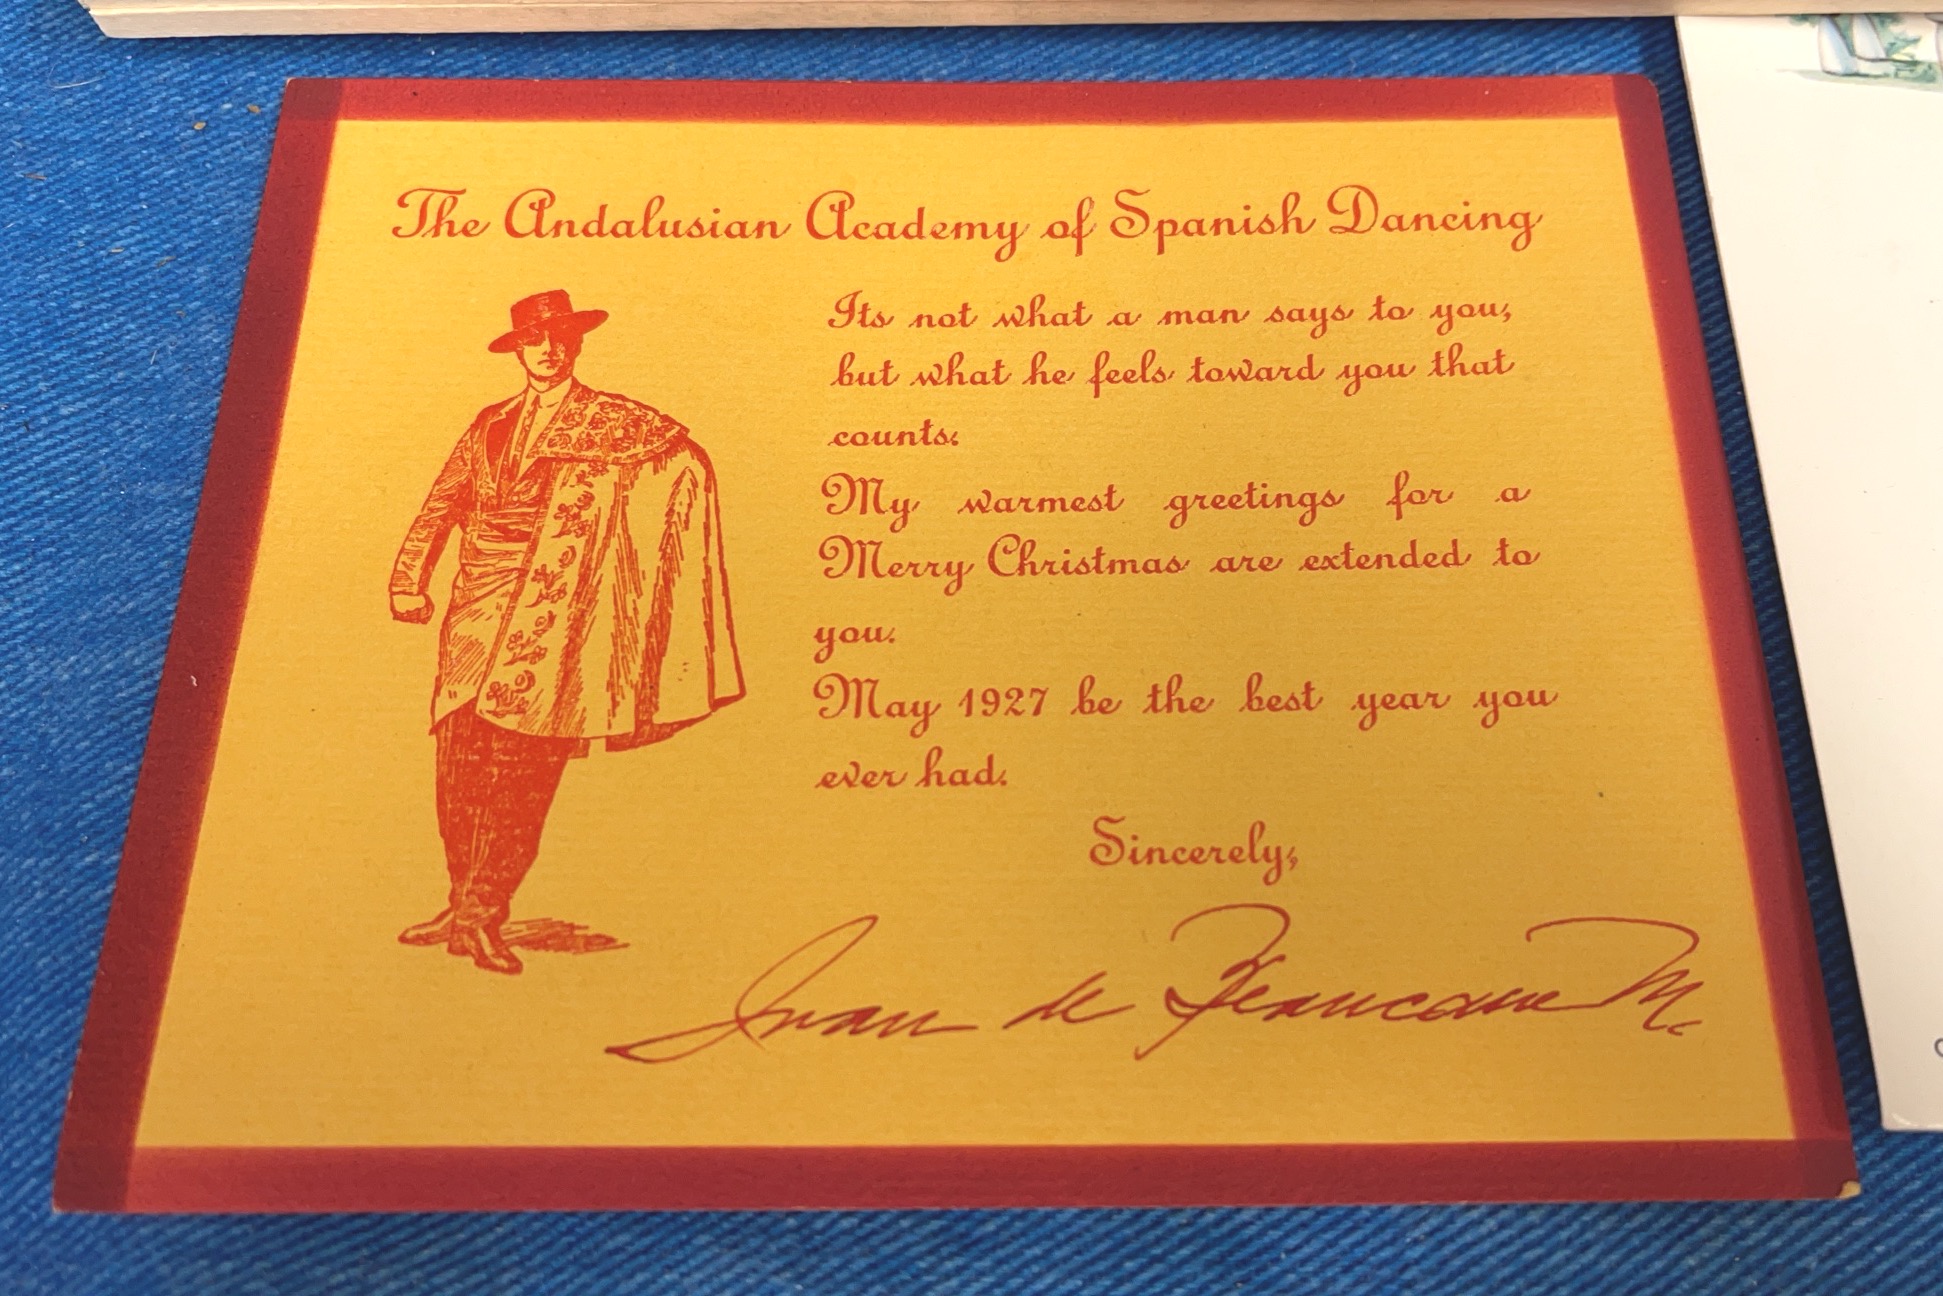 The Andalusian Academy of Spanish Dancing
Its not what a man says to you,
but what he feels toward you that
counts.
My warmest greetings for a
Merry Christmas are extended to
you.
May 1927 be the best year you
ever had.
Sincerely,
Juan de Beaucaire M.